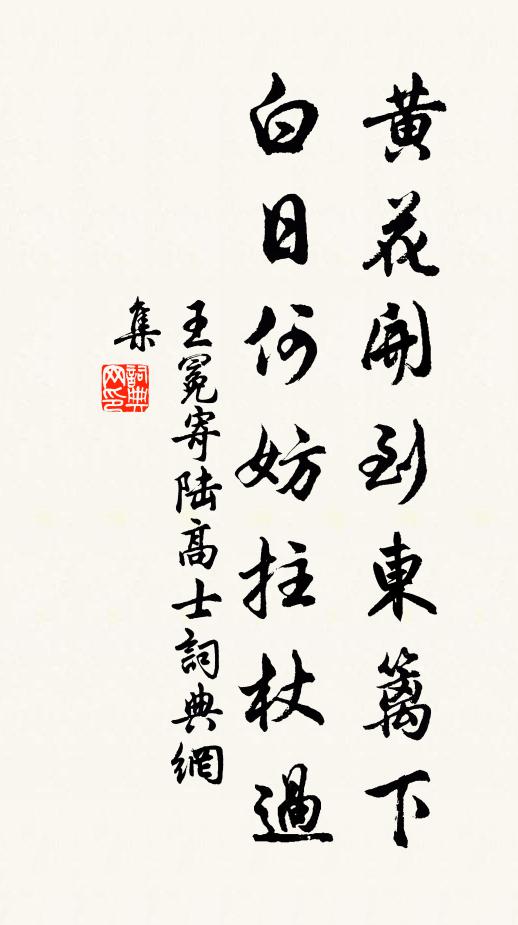 黄花開到東籬下
白日何妨拄杖過
王冕寄陸高士詞典網
集
詞典
网印